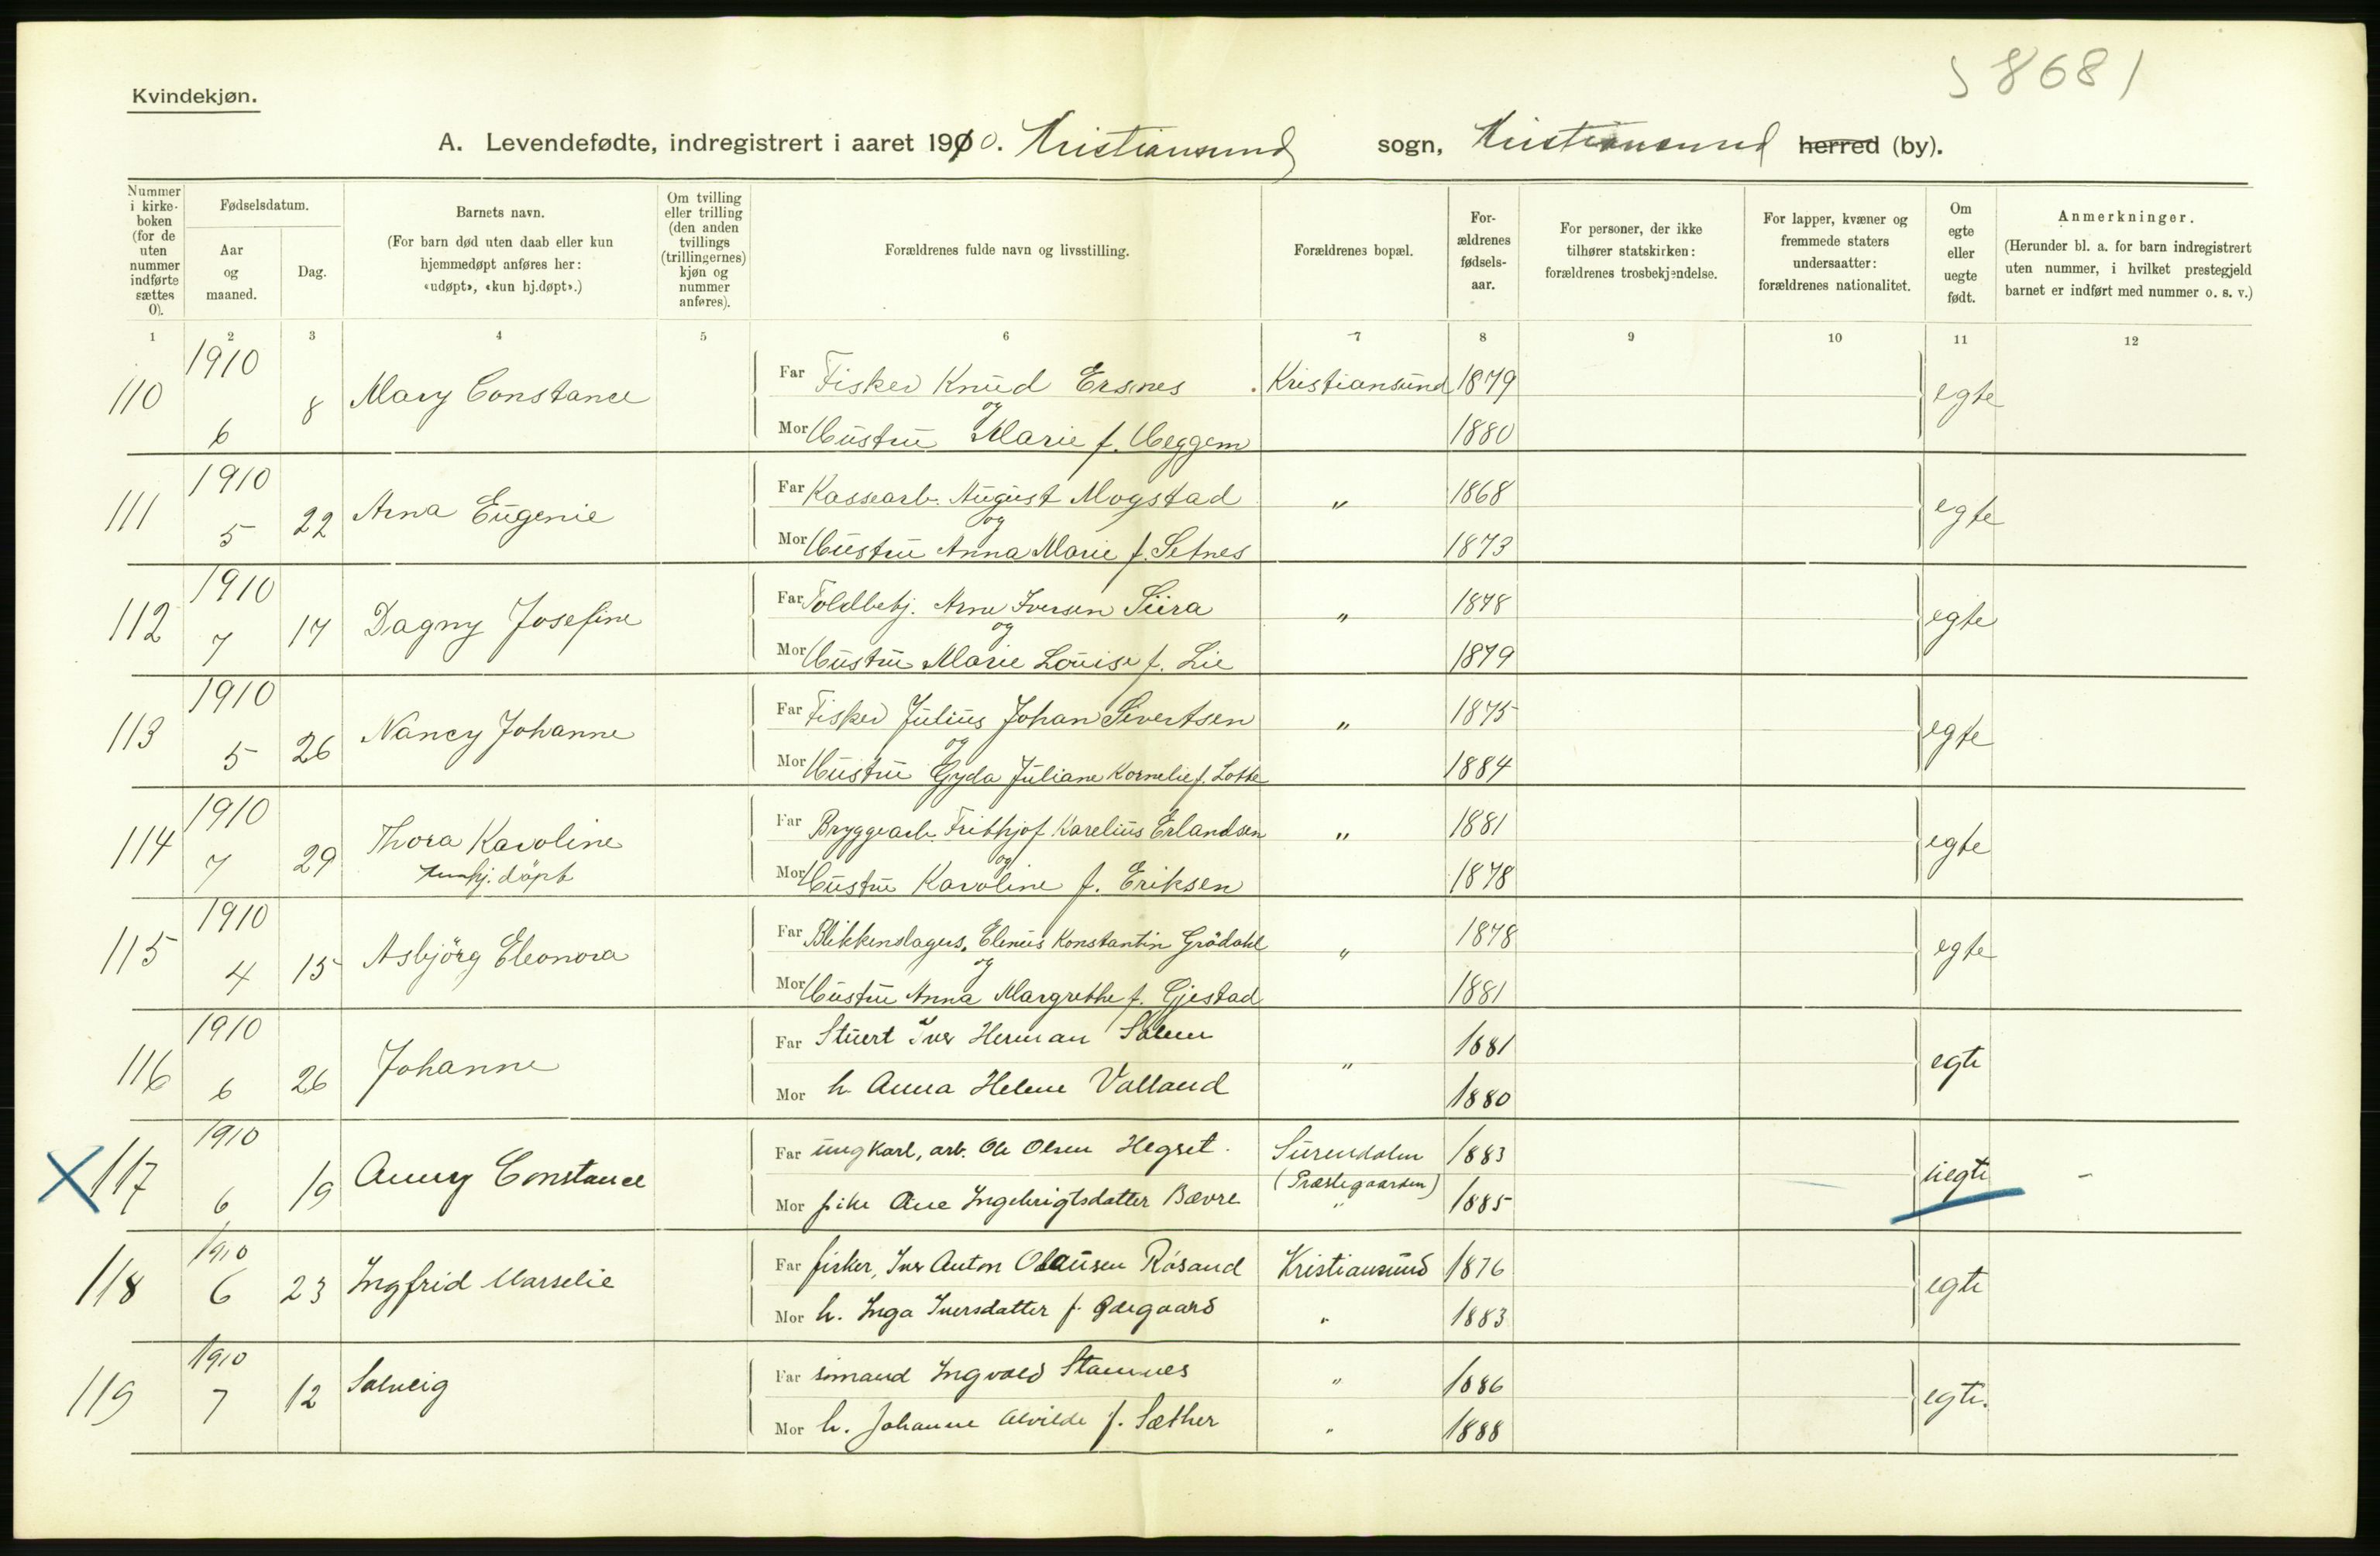 58681
Kvindekjøn.
A. Levendefødte, indregistrert i aaret 1910. Kristiansund sogn, Kristiansund herred (by).
Nummer i kirkeboken (for de uten nummer indførte sættes 0).
Fødselsdatum.
Aar og maaned.
Dag.
Barnets navn.
(For barn død uten daab eller kun hjemmedøpt anføres her: «udøpt», «kun hj.døpt».)
Om tvilling eller trilling (den anden tvillings (trillingernes) kjøn og nummer anføres).
Forældrenes fulde navn og livsstilling.
Forældrenes bopæl.
Forældrenes fødselsaar.
For personer, der ikke tilhører statskirken: forældrenes trosbekjendelse.
For lapper, kvæner og fremmede staters undersaatter: forældrenes nationalitet.
Om egte eller uegte født.
Anmerkninger.
(Herunder bl. a. for barn indregistrert uten nummer, i hvilket prestegjeld barnet er indført med nummer o. s. v.)
1 2 3 4 5 6 7 8 9 10 11 12
110 1910 6 8 Mary Constance
Far Fisker Knud Ersnes Kristiansund 1879 egte
og
Mor Hustru Marie f. Heggem 1880
111 1910 5 22 Arna Eugenie
Far Kassearb. August Mogstad " 1868 egte
og
Mor Hustru Anna Marie f. Setnes 1873
112 1910 7 17 Dagny Josefine
Far Toldbetj. Arne Iversen Siira " 1878 egte
og
Mor Hustru Marie Louise f. Lie 1879
113 1910 5 26 Nancy Johanne
Far Fisker Julius Johan Sivertsen " 1875 egte
og
Mor Hustru Gyda Juliane Kornelie f. Lotte 1884
114 1910 7 29 Thora Karoline
hj. döpt
Far Bryggearb. Frithjof Karelius Erlandsen " 1881 egte
og
Mor Hustru Karoline f. Eriksen 1878
115 1910 4 15 Asbjörg Eleonora
Far Blikkenslagers. Elenius Konstantin Grödahl " 1878 egte
og
Mor Hustru Anna Margrethe f. Gjestad 1881
116 1910 6 26 Johanne
Far Stuert Iver Herman Solem " 1881 egte
Mor h. Anna Helene Valland 1880
117 1910 6 19 Anny Constance
Far ungkarl, arb. Ole Olsen Hegset. Surendalen 1883 uegte -
(Præstegaarden)
Mor pike Ane Ingebrigtsdatter Bævre " 1885
118 1910 6 23 Ingfrid Marselie
Far fisker, Iver Anton Olausen Røsand Kristiansund 1876 egte
Mor h. Inga Iversdatter f. Ødegaard " 1883
119 1910 7 12 Solveig
Far sømand Ingvald Stamnes " 1886 egte.
Mor h. Johanne Alvilde f. Sæther " 1888